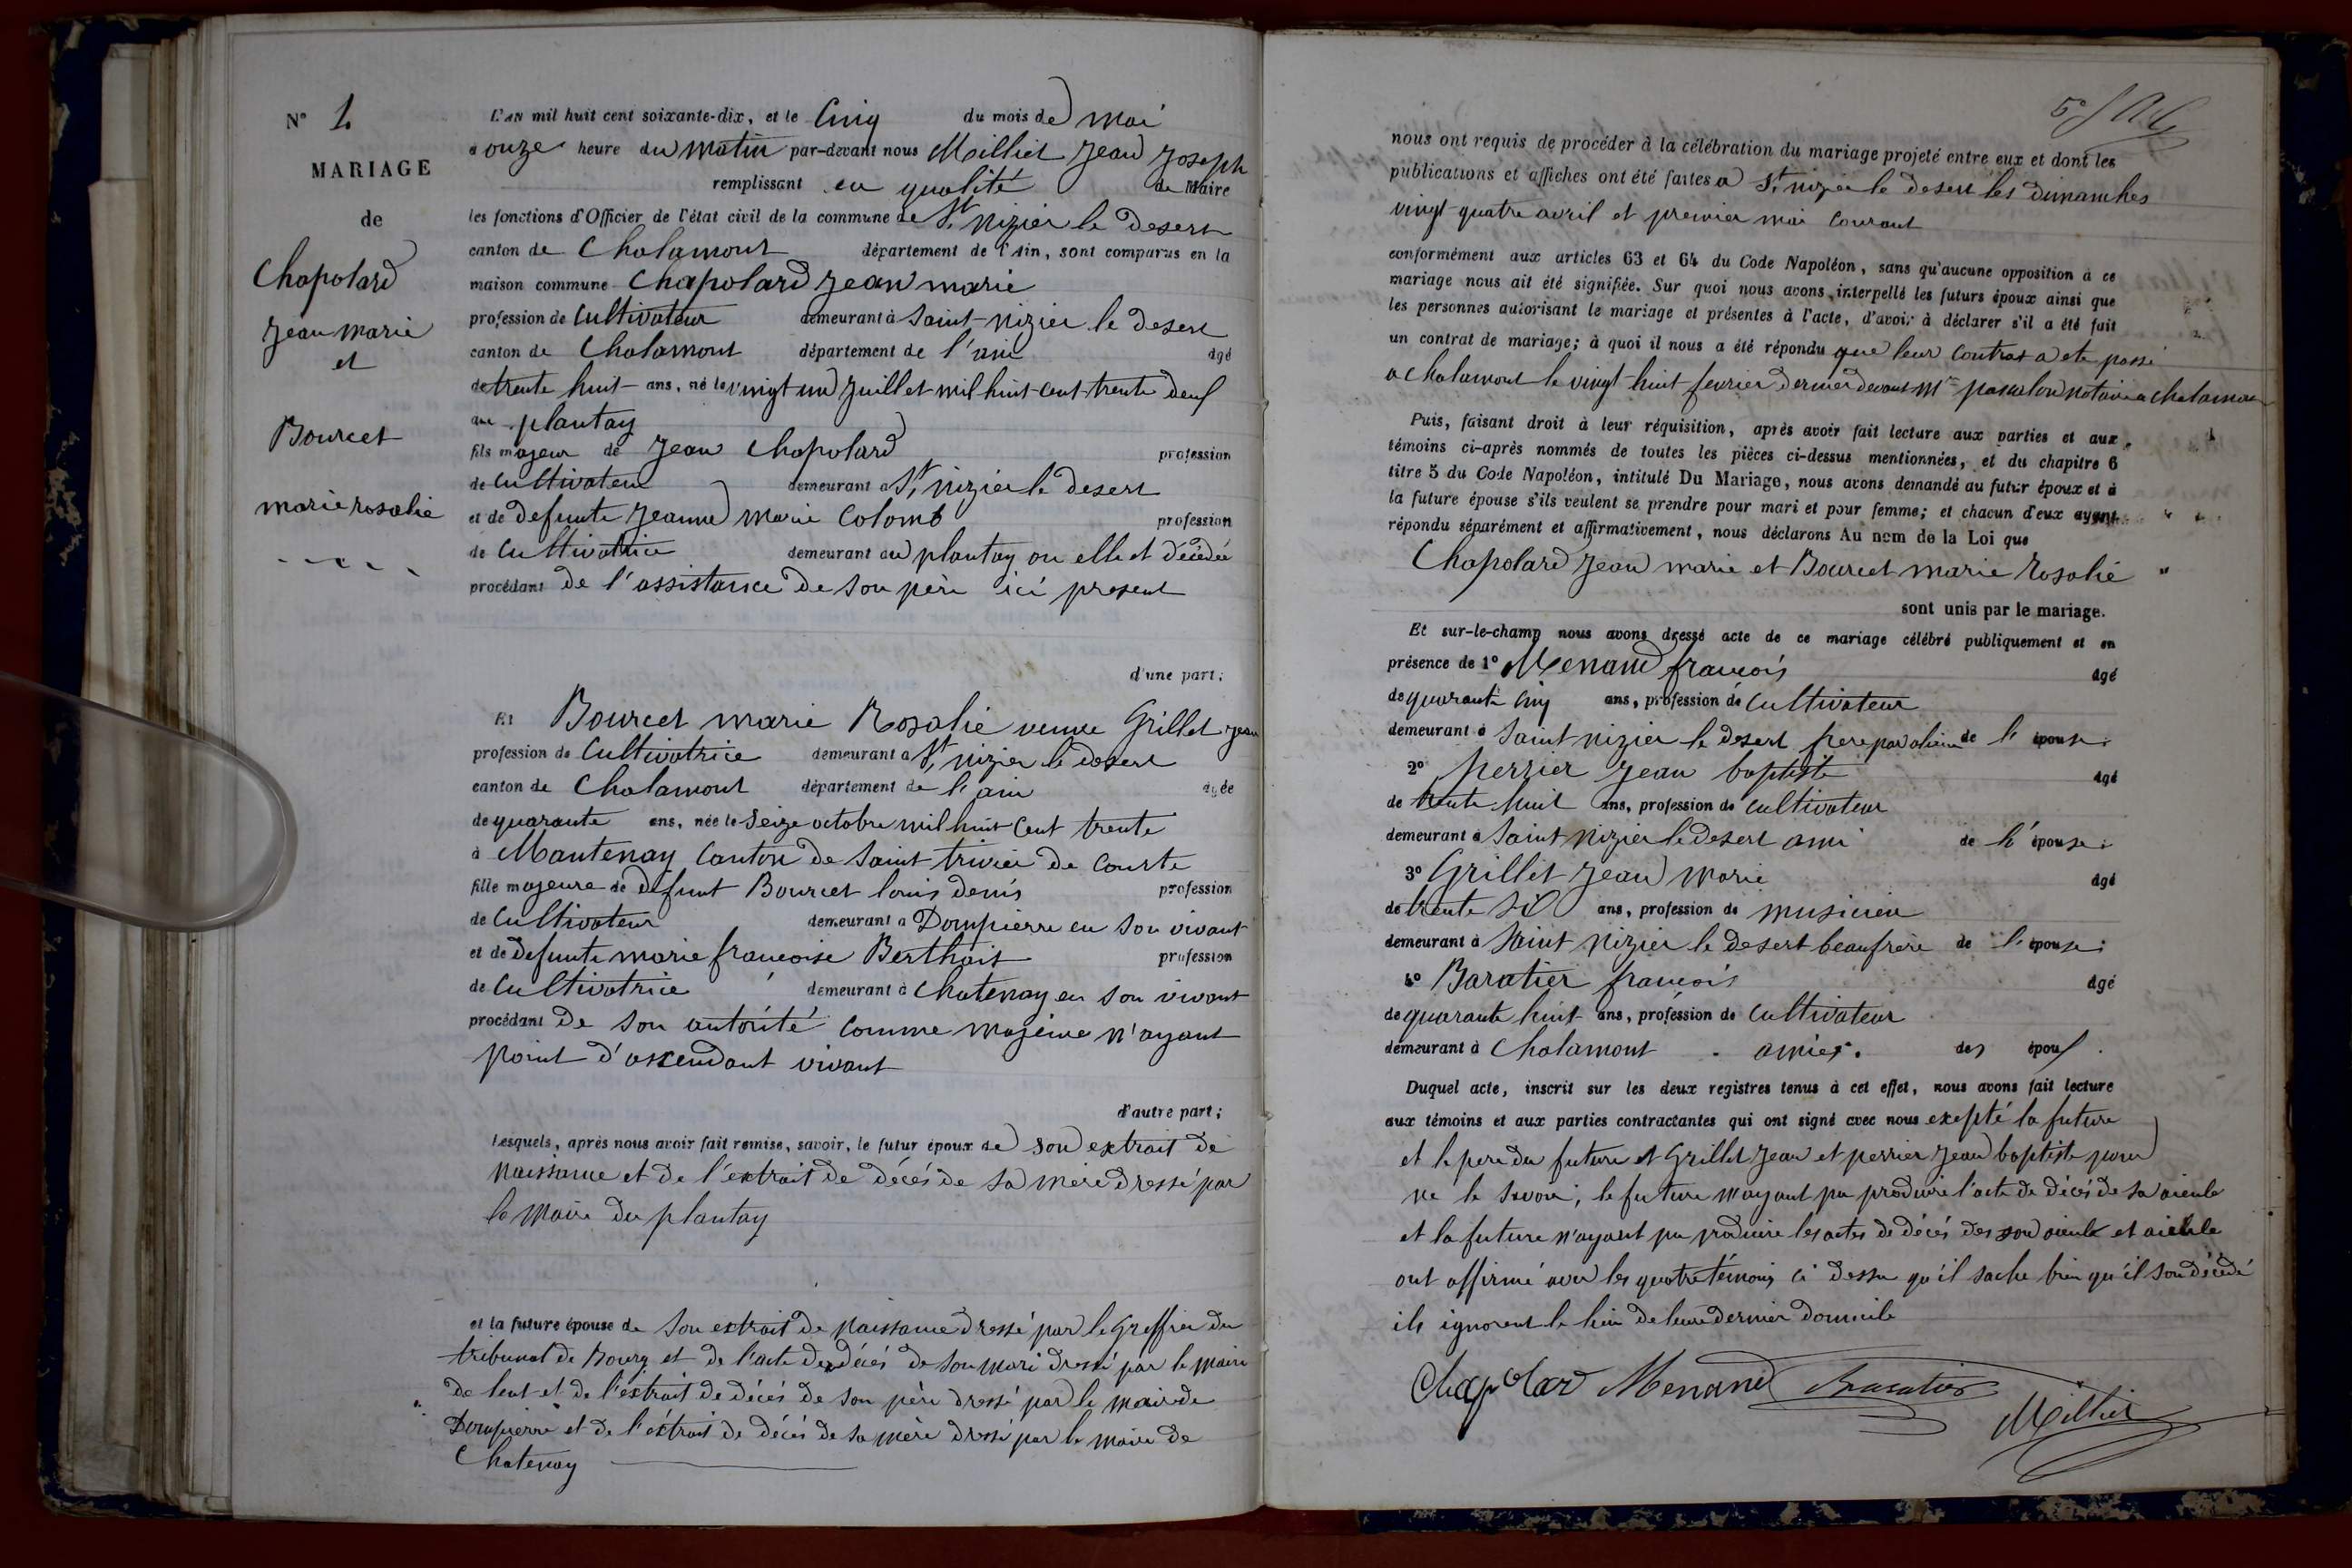 N° 1.
MARIAGE
de
Chapolard
Jean marie
et
Bourcet
marie rosalie
L'AN mil huit cent soixante-dix, et le Cinq du mois de mai
a onze heure du matin par-devant nous Milliet Jean Joseph
remplissant en qualité de Maire
les fonctions d'Officier de l'état civil de la commune de St nizier le desert
canton de Chalamont département de l'Ain, sont comparus en la
maison commune Chapolard Jean marie
profession de Cultivateur demeurant à Saint-nizier le desert
canton de Chalamont département de l'ain âgé
de trente huit ans, né le vingt un Juillet mil huit cent trente deux
au plantay
fils majeur de Jean Chapolard profession
de Cultivateur demeurant a St nizier le desert
et de defunte Jeanne marie Colomb profession
de Cultivatrice demeurant au plantay ou elle et décédée
procédant de l'assistance de son père ici present
d'une part;
Et Bourcet marie Rosalie veuve Grillet Jean
profession de Cultivatrice demeurant a St nizier le desert
canton de Chalamont département de l'ain âgée
de quarante ans, née le Seize octobre mil huit Cent trente
à Mantenay Canton de Saint trivier de Courte
fille majeure de défunt Bourcet louis denis profession
de Cultivateur demeurant a Dompierre en son vivant
et de defunte marie francoise Berthait profession
de Cultivatrice demeurant à Chatenay en son vivant
procédant de son autorité comme majeure n'ayant
point d'ascendant vivant
d'autre part;
Lesquels, après nous avoir fait remise, savoir, le futur époux de son extrait de
naissance et de l'extrait de décés de sa mère dressé par
le maire du plantay
et la future épouse de son extrait de naissance dressé par le Greffier du
tribunat de Bourg et de l'acte de décés de son mari dressé par le maire
de lent et de l'éxtrait de décés de son père dressé par le maire de
Dompierre et de l'éxtrait de décés de sa mère dressé par le maire de
Chatenay
5e
nous ont requis de procéder à la célébration du mariage projeté entre eux et dont les
publications et affiches ont été faites a St nizier le desert les dimanches
vingt quatre avril et premier mai courant
conformément aux articles 63 et 64 du Code Napoléon, sans qu'aucune opposition à ce
mariage nous ait été signifiée. Sur quoi nous avons interpellé les futurs époux ainsi que
les personnes autorisant le mariage et présentes à l'acte, d'avoir à déclarer s'il a été fait
un contrat de mariage; à quoi il nous a été répondu que leur Contrat a ete passé
a Chalamont le vingt-huit fevrier dernier devant Me notaire a chalamont
Puis, faisant droit à leur réquisition, après avoir fait lecture aux parties et aux
témoins ci-après nommés de toutes les pièces ci-dessus mentionnées, et du chapitre 6
titre 5 du Code Napoléon, intitulé Du Mariage, nous avons demandé au futur époux et à
la future épouse s'ils veulent se prendre pour mari et pour femme; et chacun d'eux ayant
répondu séparément et affirmativement, nous déclarons Au nom de la Loi que
Chapolard Jean marie et Bourcet marie Rosalie
sont unis par le mariage.
Et sur-le-champ nous avons dressé acte de ce mariage célébré publiquement et en
présence de 1° Menand francois âgé
de quarante Cinq ans, profession de Cultivateur
demeurant à Saint nizier le desert frere par aliance de l'épouse
2° perrier Jean baptiste âgé
de trente huit ans, profession de cultivateur
demeurant à Saint nizier le desert ami de l'épouse
3° Grillet Jean marie âgé
de trente six ans, profession de musicien
demeurant à Saint nizier le desert beaufrère de l'épouse;
4° Baratier francois âgé
de quarante huit ans, profession de Cultivateur
demeurant à Chalamont amies. des époux.
Duquel acte, inscrit sur les deux registres tenus à cet effet, nous avons fait lecture
aux témoins et aux parties contractantes qui ont signé avec nous exepté la future
et le pere du future et Grillet Jean et perrier Jean baptiste pour
ne le savoir; le future n'ayant pu produire l'acte de décés de sa aieule
et la future n'ayant pu produire les actes de décés des son aieule et aieule
ont affirmé avec les quatre témoins ci dessu qu'il sache bien qu'il son décédé
ils ignorent le lieu de leure dernier domicile
Chapolard Menand Baratier
Milliet